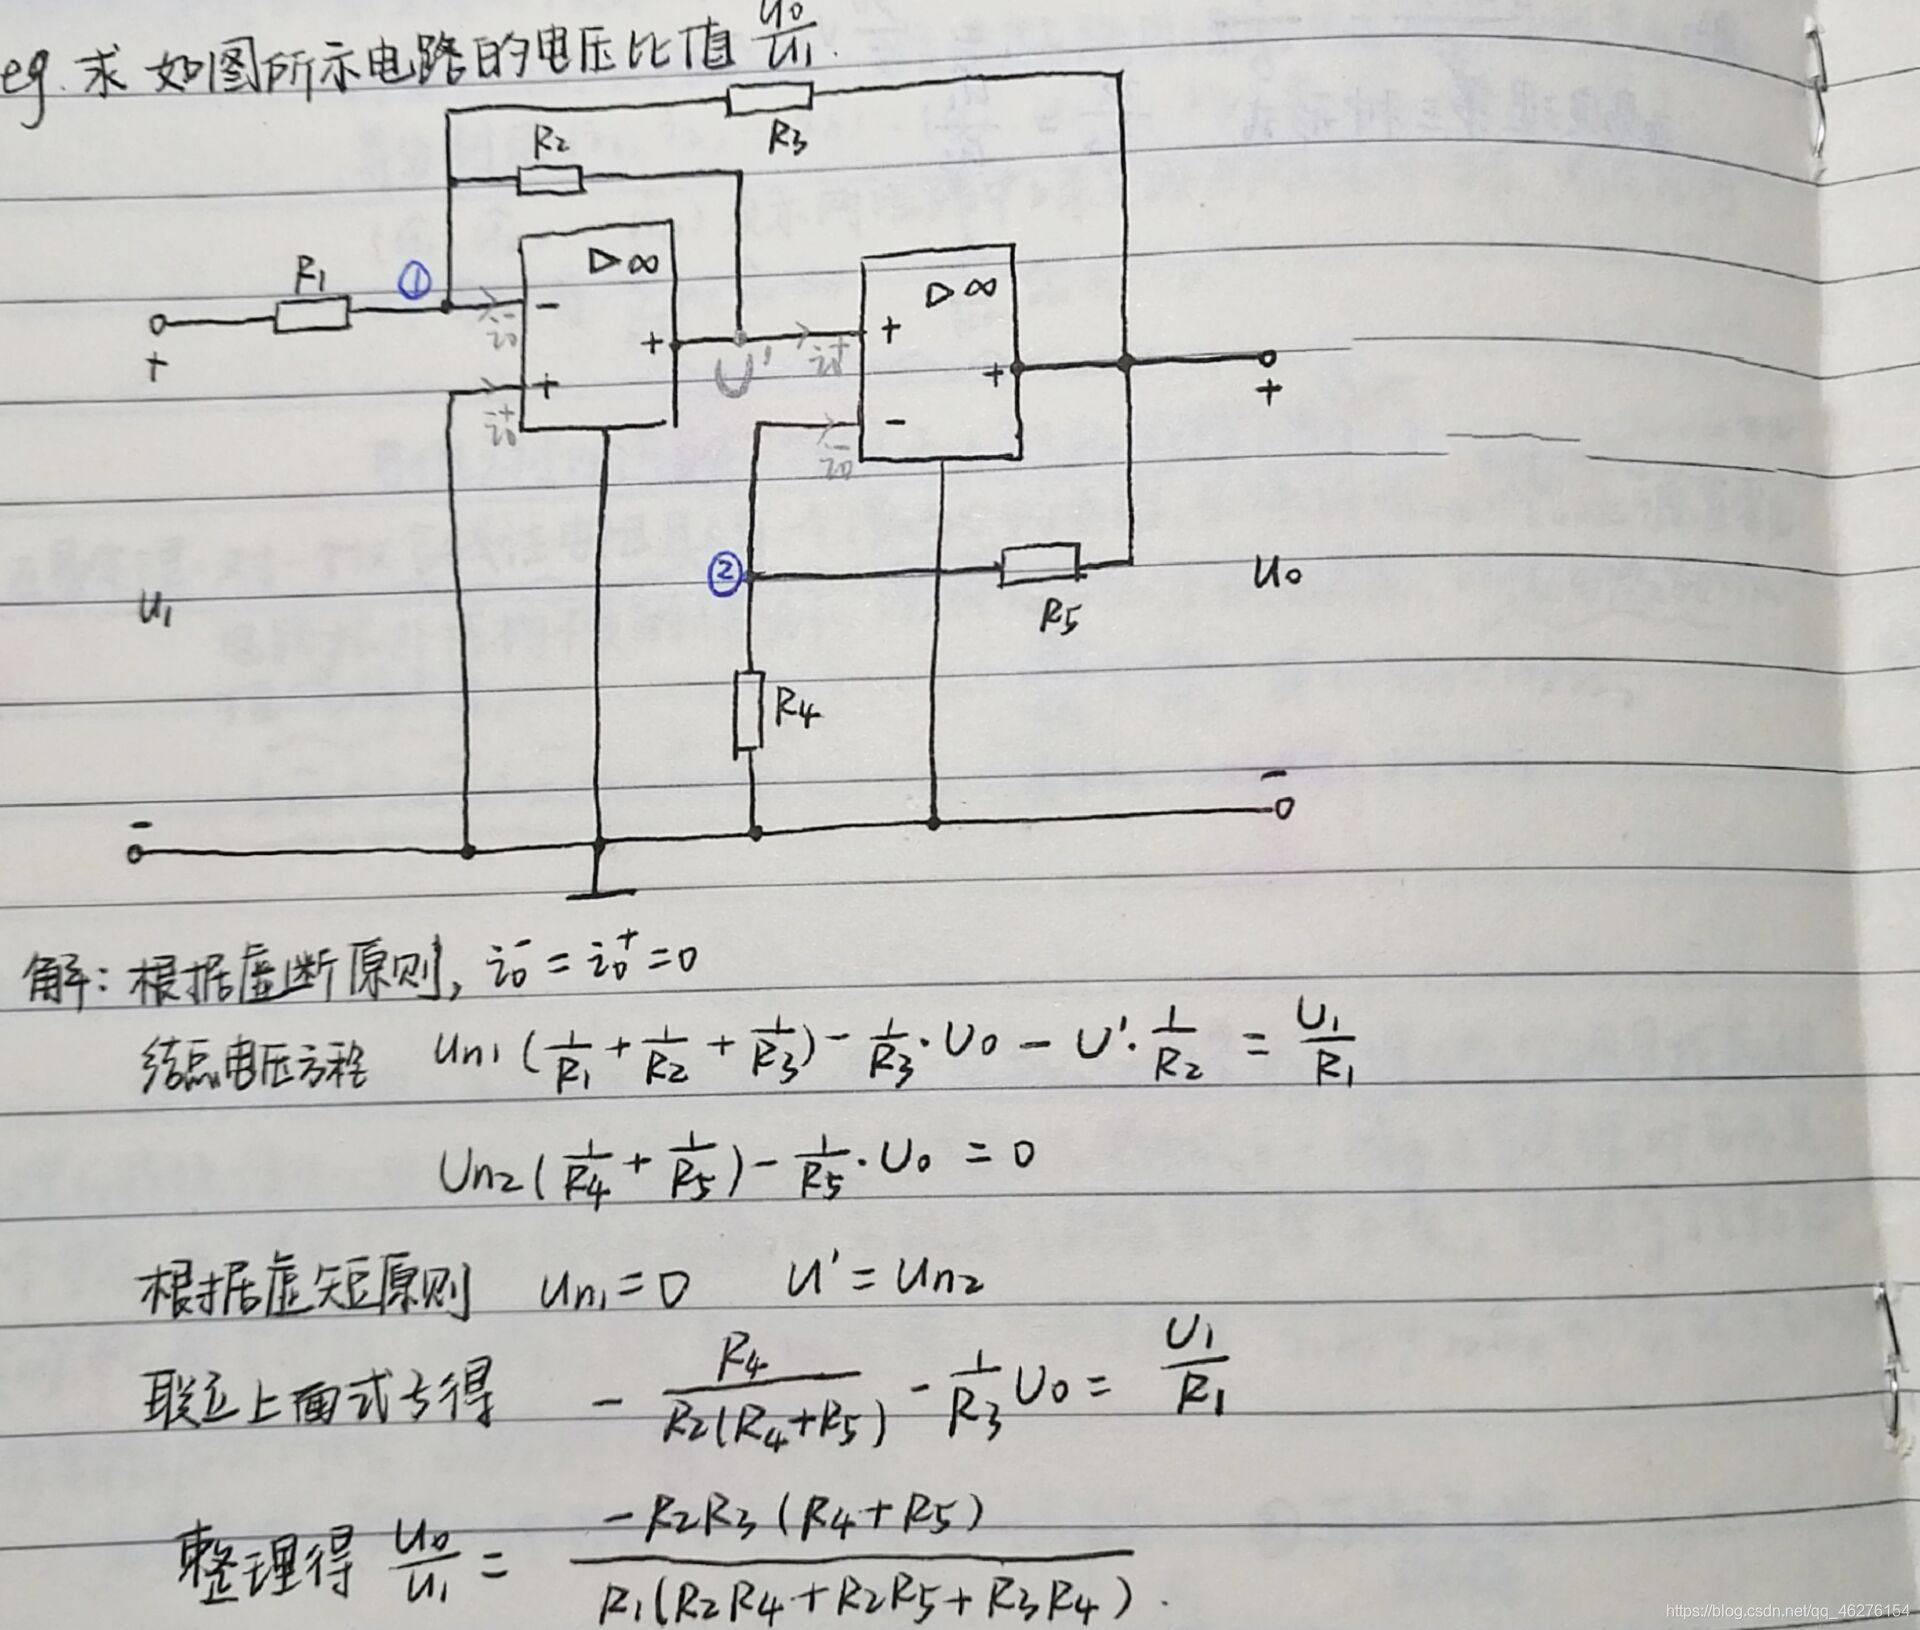 eg. 求如图所示电路的电压比值 u₀/u₁.
R₃
R₂
R₁ ① ▷∞
− i₀⁻
+ + U' i₀⁺ + ▷∞
i₀⁺ + + +
i₀⁻ −
② R₅ u₀
u₁
R₄
− −
解: 根据虚断原则, i₀⁻ = i₀⁺ = 0
结点电压方程 Un₁(1/R₁ + 1/R₂ + 1/R₃) − 1/R₃·U₀ − U'·1/R₂ = U₁/R₁
Un₂(1/R₄ + 1/R₅) − 1/R₅·U₀ = 0
根据虚短原则 Un₁ = 0 U' = Un₂
联立上面式子得 − R₄/R₂(R₄+R₅) − 1/R₃ U₀ = U₁/R₁
整理得 u₀/u₁ = −R₂R₃(R₄+R₅)/R₁(R₂R₄+R₂R₅+R₃R₄).
https://blog.csdn.net/qq_46276154